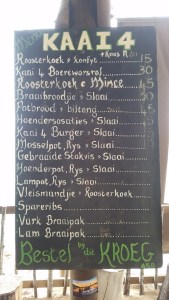 KAAI 4
Roosterkoek + konfyt 15
Kaai 4 Boereworsrol 30
Roosterkoek & Mince 45
Braaibroodjie + Slaai
Potbrood + biltong 45
Hoendersosaties + Slaai
Kaai 4 Burger + Slaai
Mosselpot, Rys + Slaai
Gebraaide Stokvis + Slaai
Hoenderpot, Rys + Slaai
Lampot, Rys + Slaai
Vleismandjie + Roosterkoek
Spareribs
Vark Braaipak
Lam Braaipak
Bestel by die KROEG